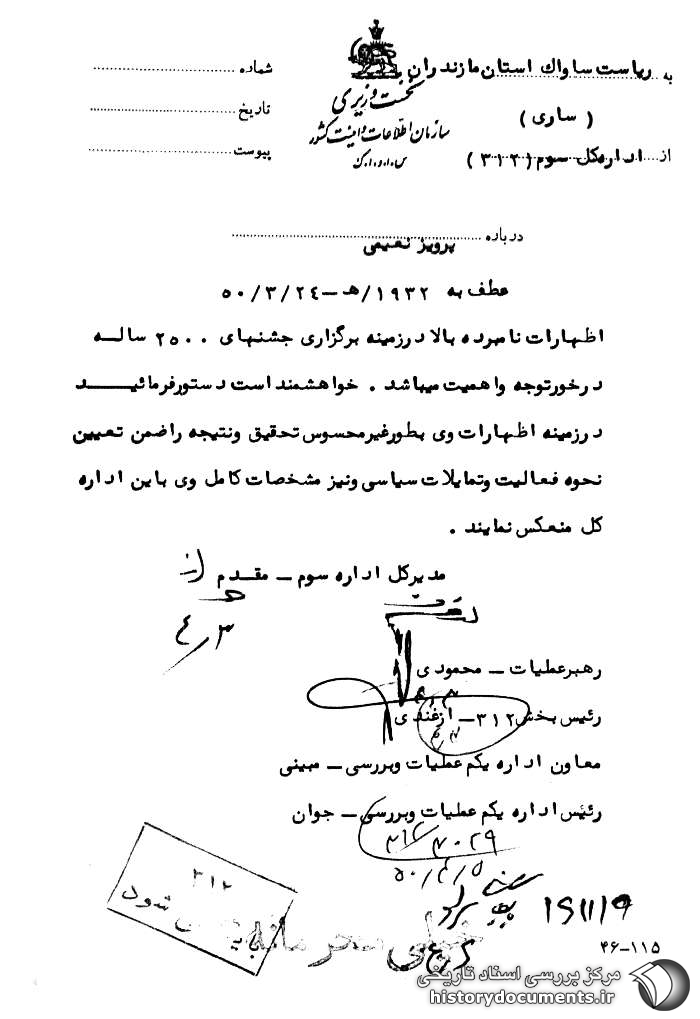 به ریاست ساواك استان مازندران
( ساری )
از اداره‌كل سوم (۳۱۲ )
نخست وزیری
سازمان اطلاعات و امنیت کشور
س.ا.و.ا.ک
شماره
تاریخ
پیوست
درباره پرویز نعیمی
عطف به ۱۹۳۲/ه‍ـ - ۵۰/۳/۲۴
اظهارات نامبرده بالا درزمینه برگزاری جشنهای ۲۵۰۰ ساله
درخورتوجه واهمیت میباشد . خواهشمند است دستورفرمائید
درزمینه اظهارات وی بطورغیرمحسوس تحقیق ونتیجه راضمن تعیین
نحوه فعالیت وتمایلات سیاسی ونیز مشخصات كامل وی باین اداره
كل منعكس نمایند .
مدیركل اداره سوم - مقدم
۴/۳
رهبرعملیات - محمودی
رئیس بخش ۳۱۲ - ازغندی
معاون اداره یكم عملیات وبررسی - مبینی
رئیس اداره یكم عملیات وبررسی - جوان
۵۰/۴/۵
۳۱۲
شود
خیلی محرمانه
۴۶-۱۱۵
مرکز بررسی اسناد تاریخی
historydocuments.ir